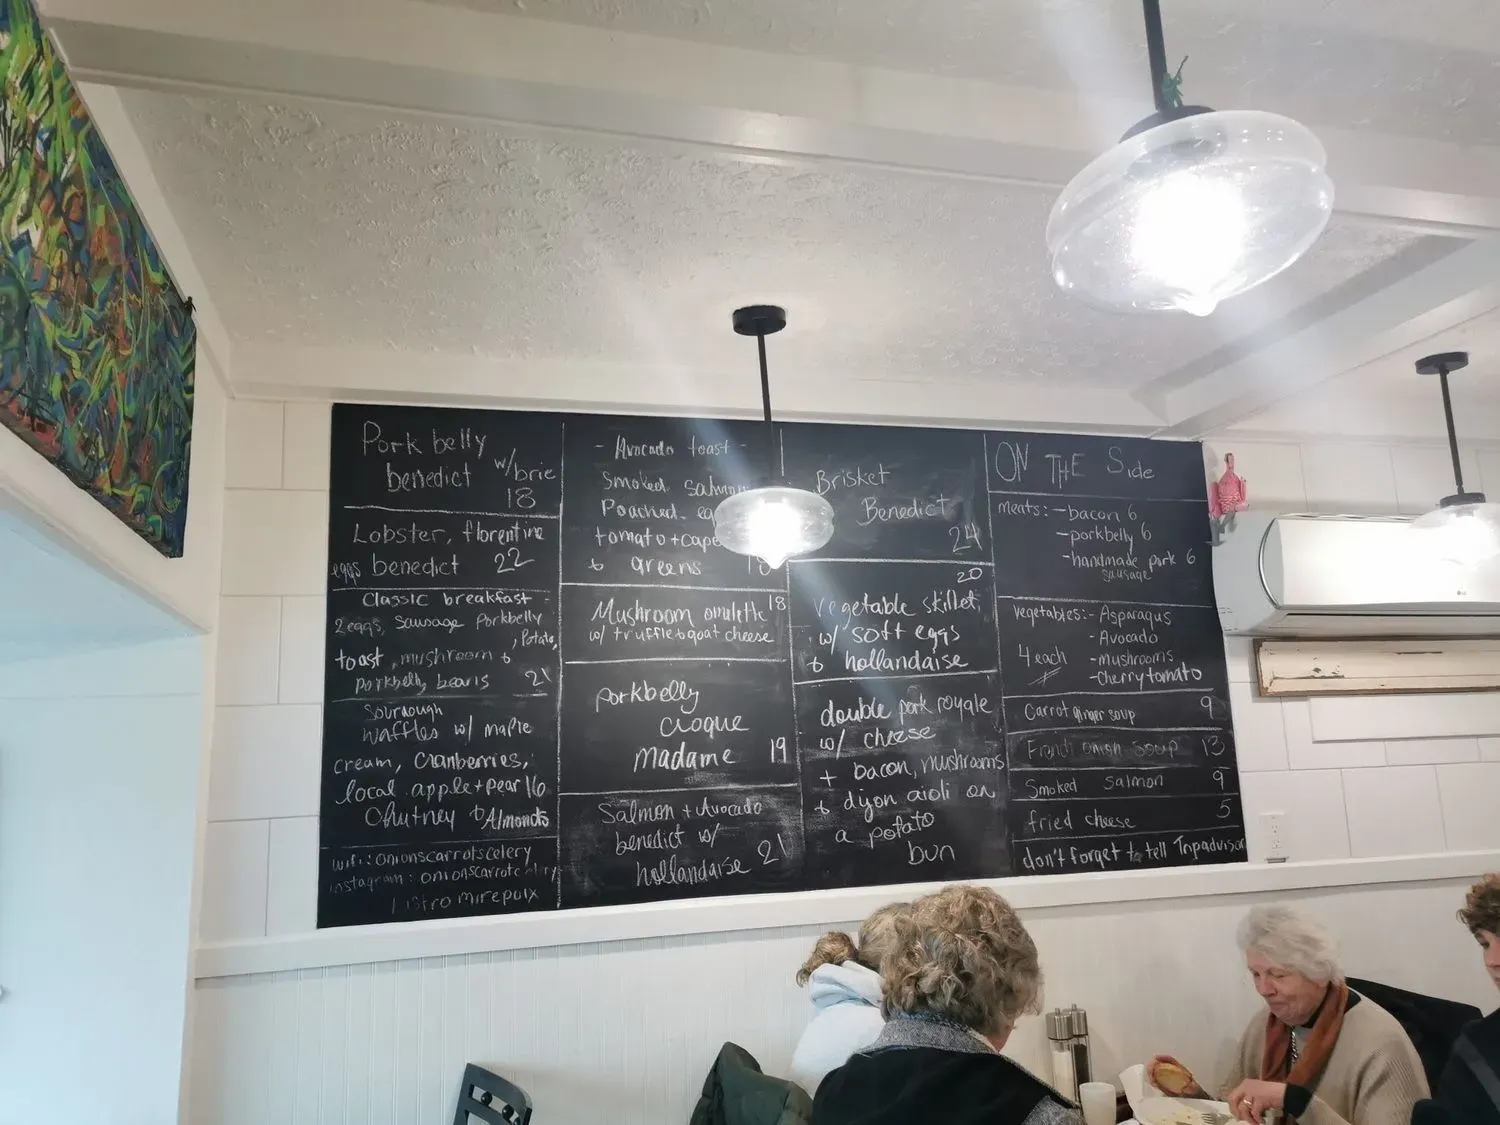 Pork belly
benedict w/brie
18
Lobster, florentine
eggs benedict 22
Classic breakfast -
2eggs, sausage porkbelly
, Potato,
toast, mushroom &
porkbelly beans 21
Sourdough
waffles w/ maple
cream, cranberries,
local apple + pear 16
Chutney & Almonds
wifi: onionscarrotscelery
instagram: onionscarrotscelery
bistro mirepoix
- Avocado toast -
Smoked
Poached
tomato + cape
& greens
Mushroom omulette 18
w/ truffle & goat cheese
porkbelly
croque
madame 19
Salmon + Avocado
benedict w/
hollandaise 21
Brisket
Benedict
24
20
vegetable skillet,
w/ soft eggs
& hollandaise
double pork royale
w/ cheese
+ bacon, mushrooms
& dijon aioli on
a potato
bun
ON THE Side
meats: - bacon 6
- porkbelly 6
- handmade pork 6
sausage
vegetables: - Asparagus
- Avocado
4 each - mushrooms
- cherry tomato
Carrot ginger soup 9
French onion soup 13
Smoked Salmon 9
fried cheese 5
don't forget to tell Tripadvisor
LG